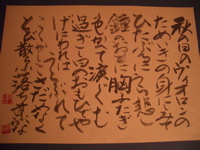 秋の日のヴィオロンの
ためいきの身にしみて
ひたぶるにうら悲し
鐘のおとに胸ふたぎ
色かへて涙ぐむ
過ぎし日のおもひでや
げにわれはうらぶれて
ここかしこさだめなく
とび散らふ落葉かな